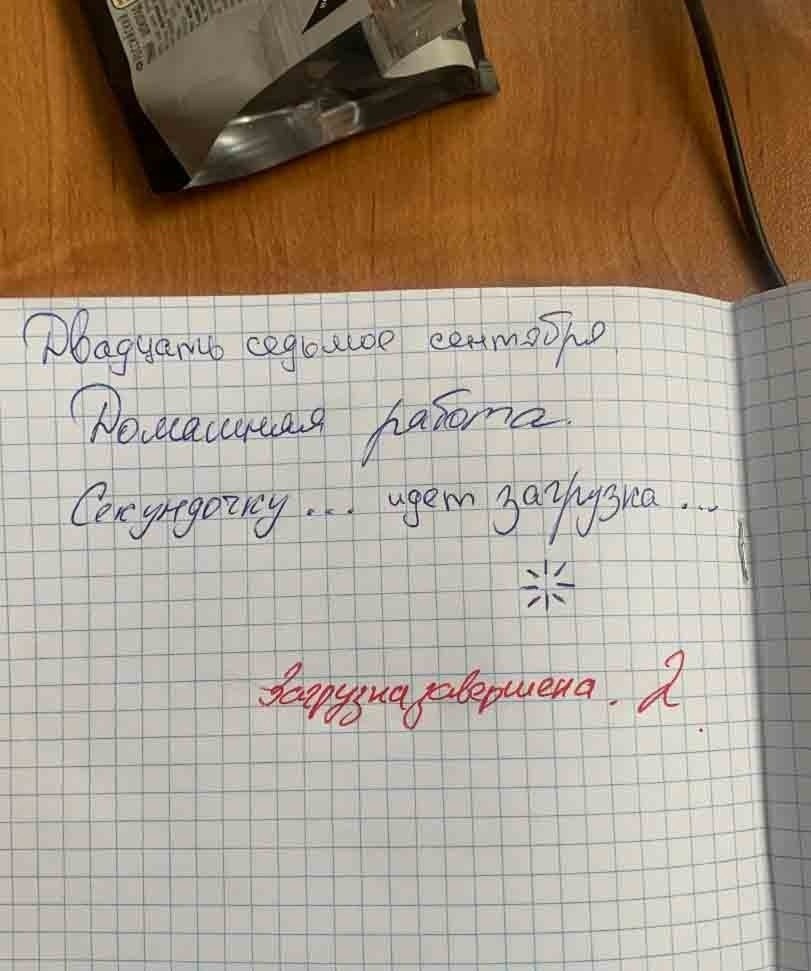 Двадцать седьмое сентября.
Домашняя работа.
Секундочку... идет загрузка...
Загрузка завершена. 2